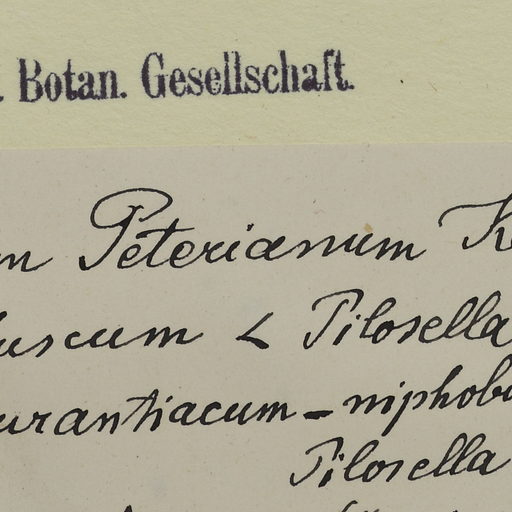 . Botan. Gesellschaft.
m Peterianum K
fuscum < Pilosella
urantiacum - niphobo
Pilosella